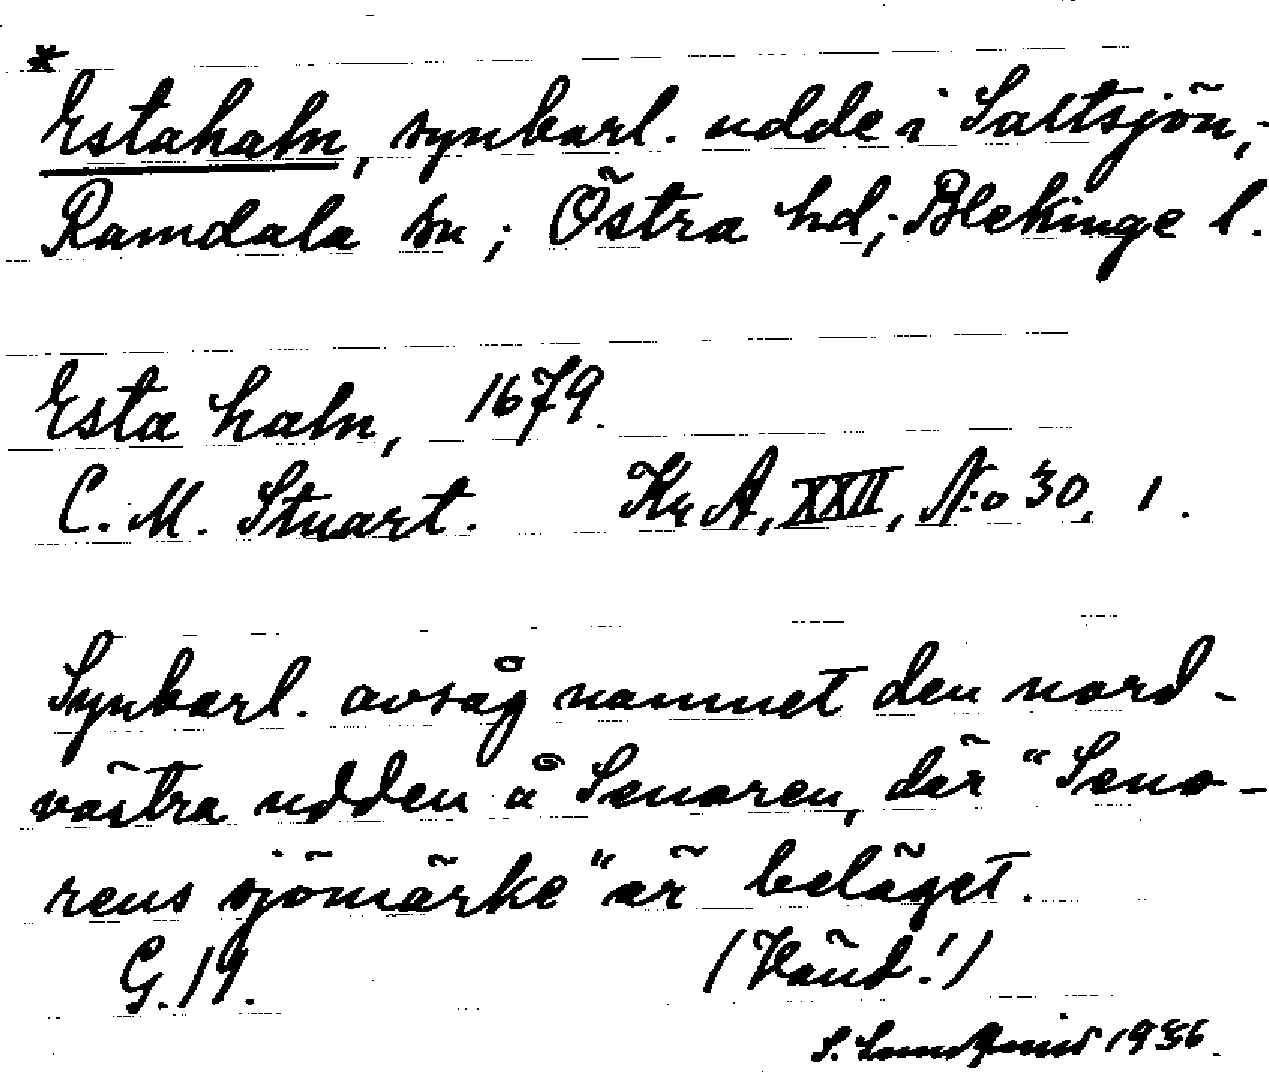 * Estahaln, synbarl. udde i Saltsjön,-
Ramdala sn; Östra hd; Blekinge l.
Esta haln, 1679.
C. M. Stuart. Kr A, XXII, N:o 30, 1.
Synbarl. avsåg namnet den nord-
västra udden å Senoren, där "Seno-
rens sjömärke" är beläget.
G. 19. (Händ!)
S. Lundquist 1936.